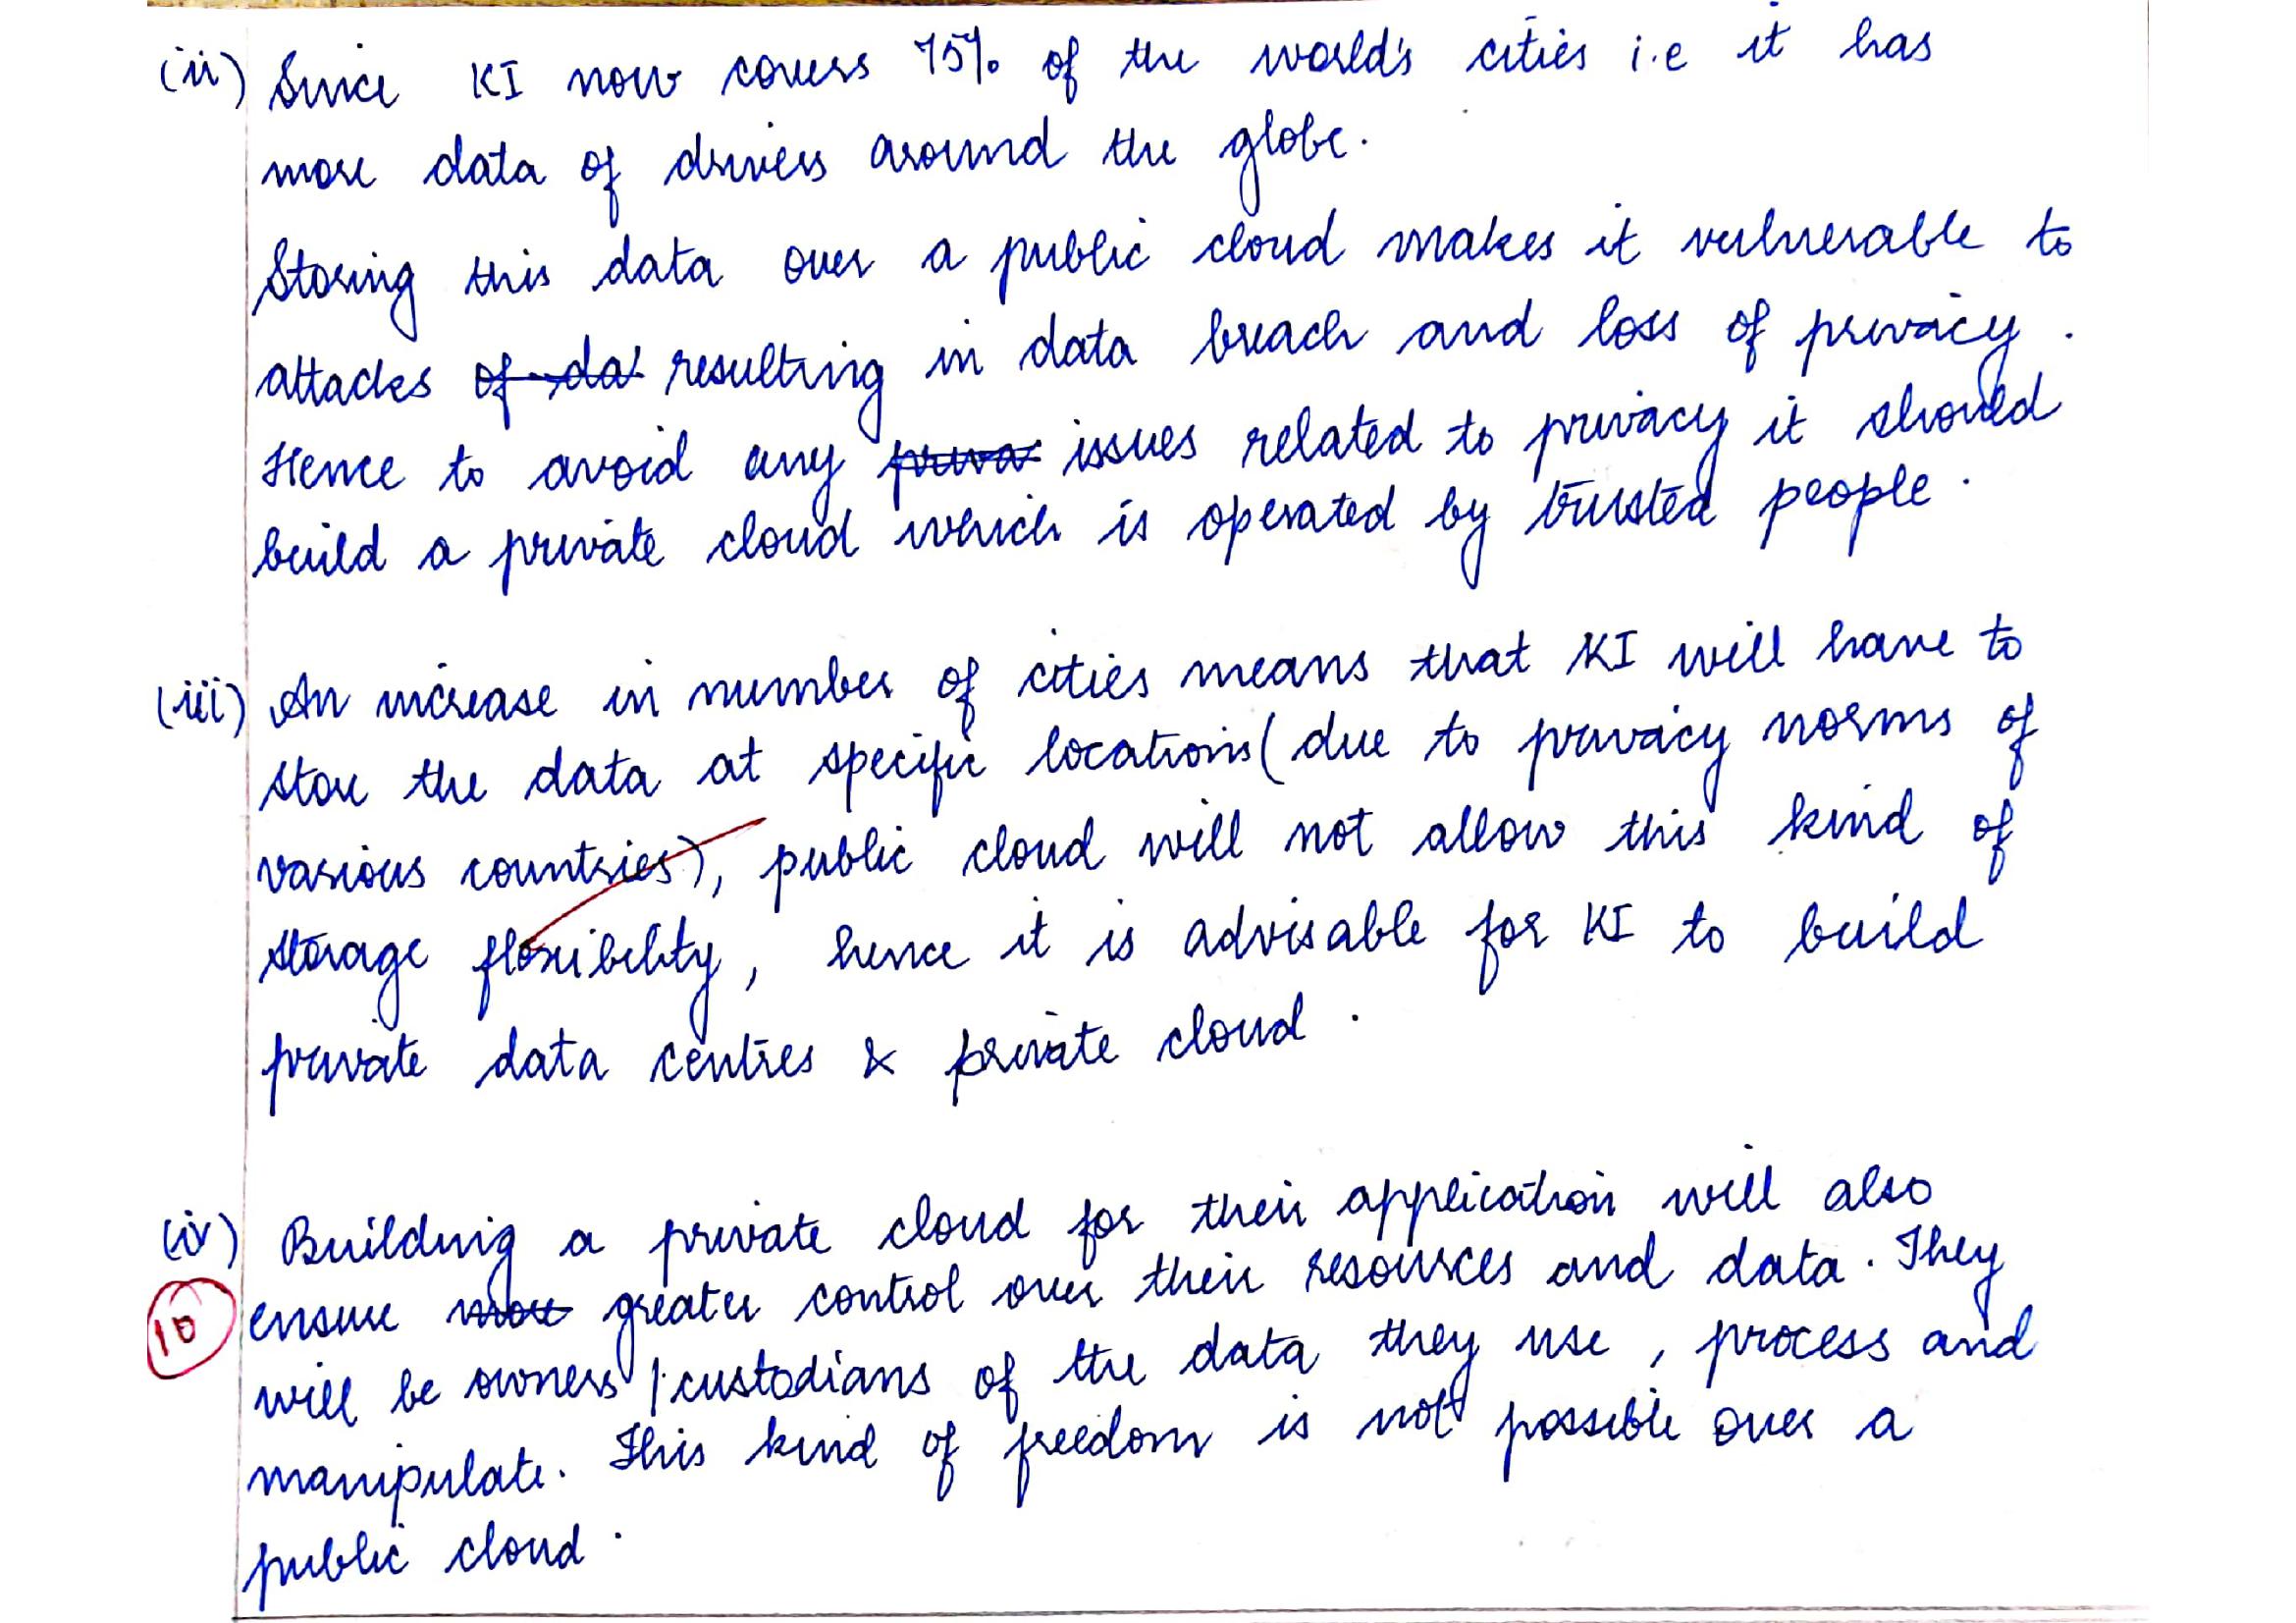 (ii) Since KI now covers 75% of the world's cities i.e it has
more data of drivers around the globe.
Storing this data over a public cloud makes it vulnerable to
attacks of da resulting in data breach and loss of privacy.
Hence to avoid any priva issues related to privacy it should
build a private cloud which is operated by trusted people.
(iii) An increase in number of cities means that KI will have to
store the data at specific locations (due to privacy norms of
various countries), public cloud will not allow this kind of
storage flexibility, hence it is advisable for KI to build
private data centres & private cloud.
(iv) Building a private cloud for their application will also
10 ensure more greater control over their resources and data. They
will be owners / custodians of the data they use, process and
manipulate. This kind of freedom is not possible over a
public cloud.